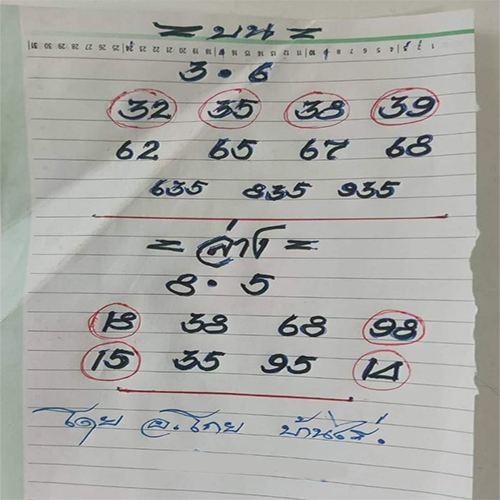 = บน =
3 . 6
32 35 38 39
62 65 67 68
635 835 935
= ล่าง =
8 . 5
18 38 68 98
15 35 95 14
โดย อ.โกย บ้านไร่.